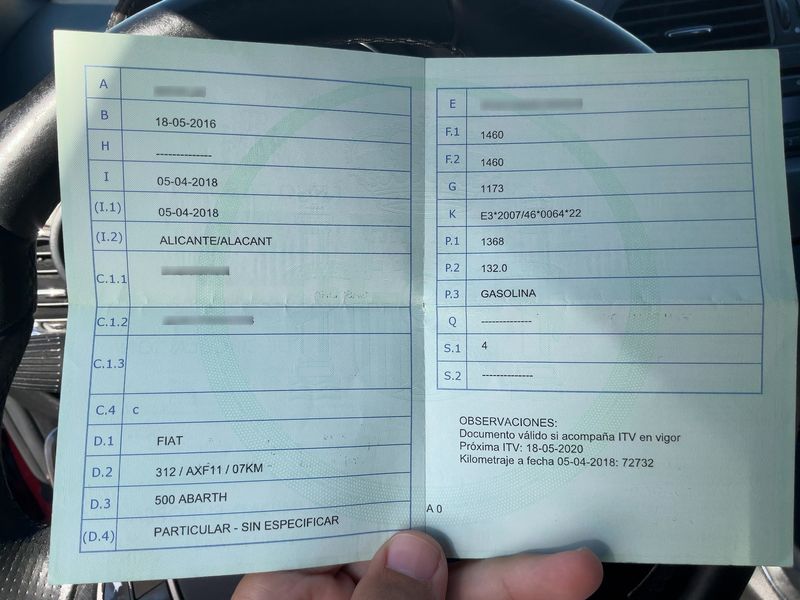 A
B 18-05-2016
H --------------
I 05-04-2018
(I.1) 05-04-2018
(I.2) ALICANTE/ALACANT
C.1.1
C.1.2
C.1.3
C.4 c
D.1 FIAT
D.2 312 / AXF11 / 07KM -
D.3 500 ABARTH
(D.4) PARTICULAR - SIN ESPECIFICAR
E
F.1 1460
F.2 1460
G 1173
K E3*2007/46*0064*22
P.1 1368
P.2 132.0
P.3 GASOLINA
Q -------------
S.1 4
S.2 -------------
OBSERVACIONES:
Documento válido si acompaña ITV en vigor
Próxima ITV: 18-05-2020
Kilometraje a fecha 05-04-2018: 72732
A 0